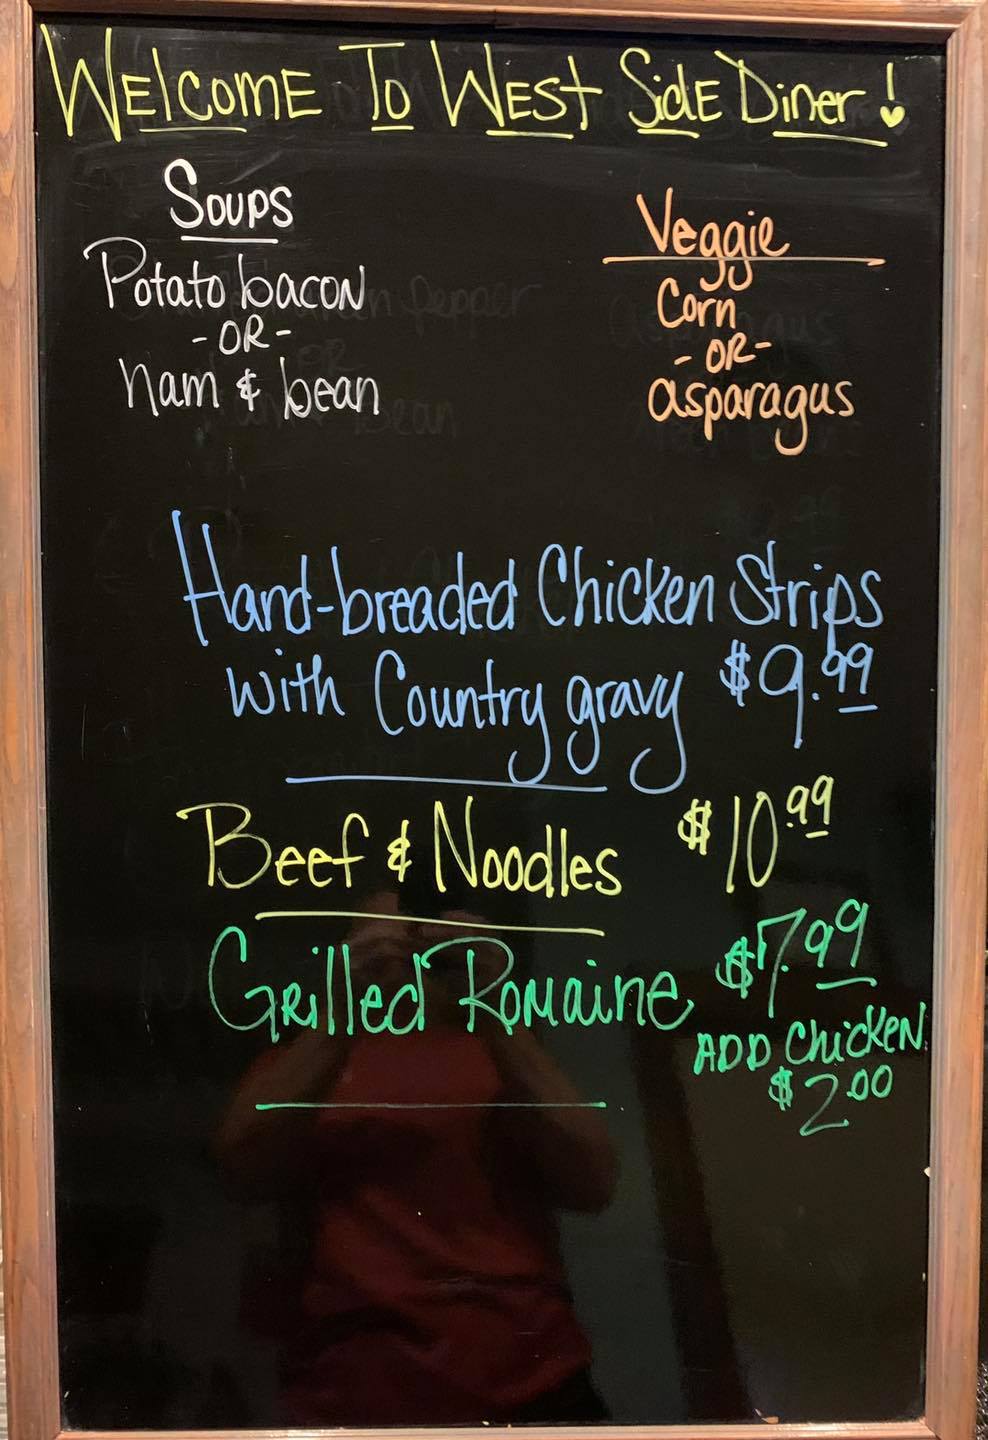 WElcomE To WESt SidE Diner!
Soups
Potato bacon
- OR -
ham & bean
Veggie
Corn
- OR -
asparagus
Hand-breaded Chicken Strips
with Country gravy $9.99
Beef & Noodles $10.99
Grilled Romaine $7.99
ADD Chicken
$2.00